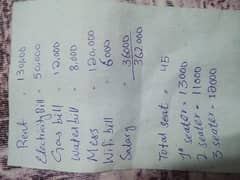 Rent = 130000
Electricity bill = 50,000
Gas bill = 12,000
Water bill = 8,000
Mess = 120,000
Wifi bill = 6000
Salary = 36000
362000
Total seat = 45
1 seater = 13000
2 seater = 11000
3 seater = 12000